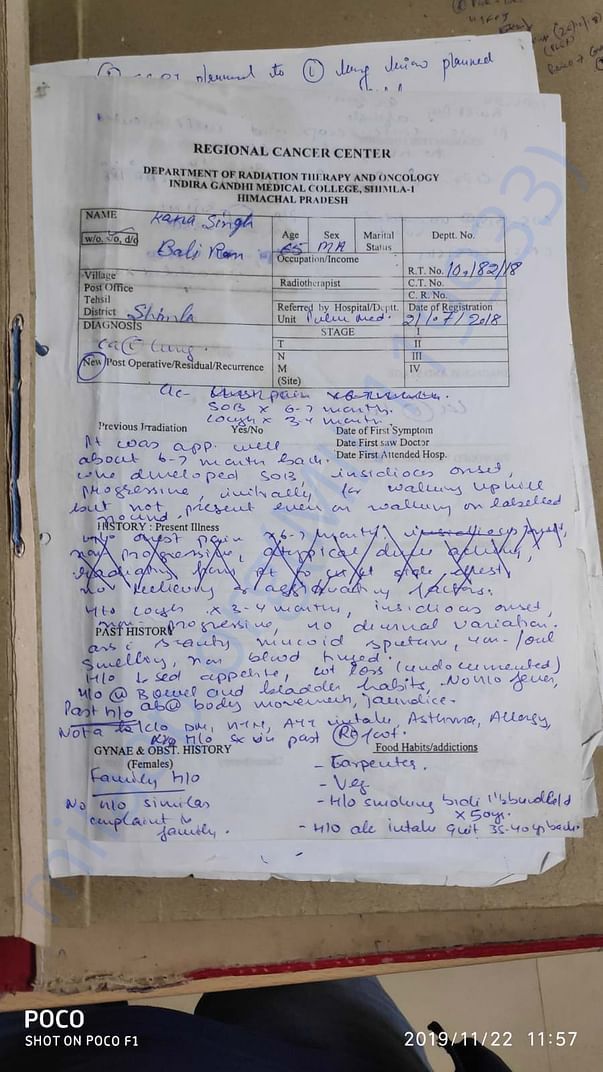 planned to Ⓛ lung lesion planned
REGIONAL CANCER CENTER
DEPARTMENT OF RADIATION THERAPY AND ONCOLOGY
INDIRA GANDHI MEDICAL COLLEGE, SHIMLA-1
HIMACHAL PRADESH
NAME Singh
w/o, s/o, d/o Bali Ram
Age 65 Sex M Marital Status Deptt. No.
Occupation/Income
Village
Post Office Radiotherapist R.T. No. 10,182/18
C.T. No.
Tehsil C. R. No.
District Shimla Referred by Hospital/Deptt. Date of Registration
Unit Pulm Med. 21/07/2018
DIAGNOSIS STAGE I
Ca Ⓛ lung. T II
New/Post Operative/Residual/Recurrence N III
M IV
(Site)
SOB x 6-7 month.
Cough x 3-4 month.
Previous Irradiation Yes/No Date of First Symptom
Pt was app. well Date First saw Doctor
about 6-7 month back. Date First Attended Hosp.
who developed SOB, insidious onset,
progressive, initially for walking uphill
but not present even on walking on labelled
ground.
HISTORY : Present Illness
chest pain x 6-7 month,
non progressive, atypical
no relieving or aggravating factors.
H/o cough x 3-4 months, insidious onset,
non-progressive, no diurnal variation.
PAST HISTORY
ass c scanty mucoid sputum, non-foul
smelling, non blood tinged.
H/o ↓sed appetite, wt loss (undocumented)
H/o Ⓝ Bowel and bladder habits, No H/o fever,
abⓃ body movement, jaundice.
Past H/o
Not a k/c/o DM, HTN, ATT intake, Asthma, Allergy,
H/o Sx in past Ⓡt foot.
GYNAE & OBST. HISTORY Food Habits/addictions
(Females) - Carpenter.
Family H/o - Veg
No H/o similar - H/o smoking bidi 1 bundle/d
x 50 yr.
complaint in
family. - H/o alc intake quit 35-40 yr back.
POCO
SHOT ON POCO F1
2019/11/22 11:57